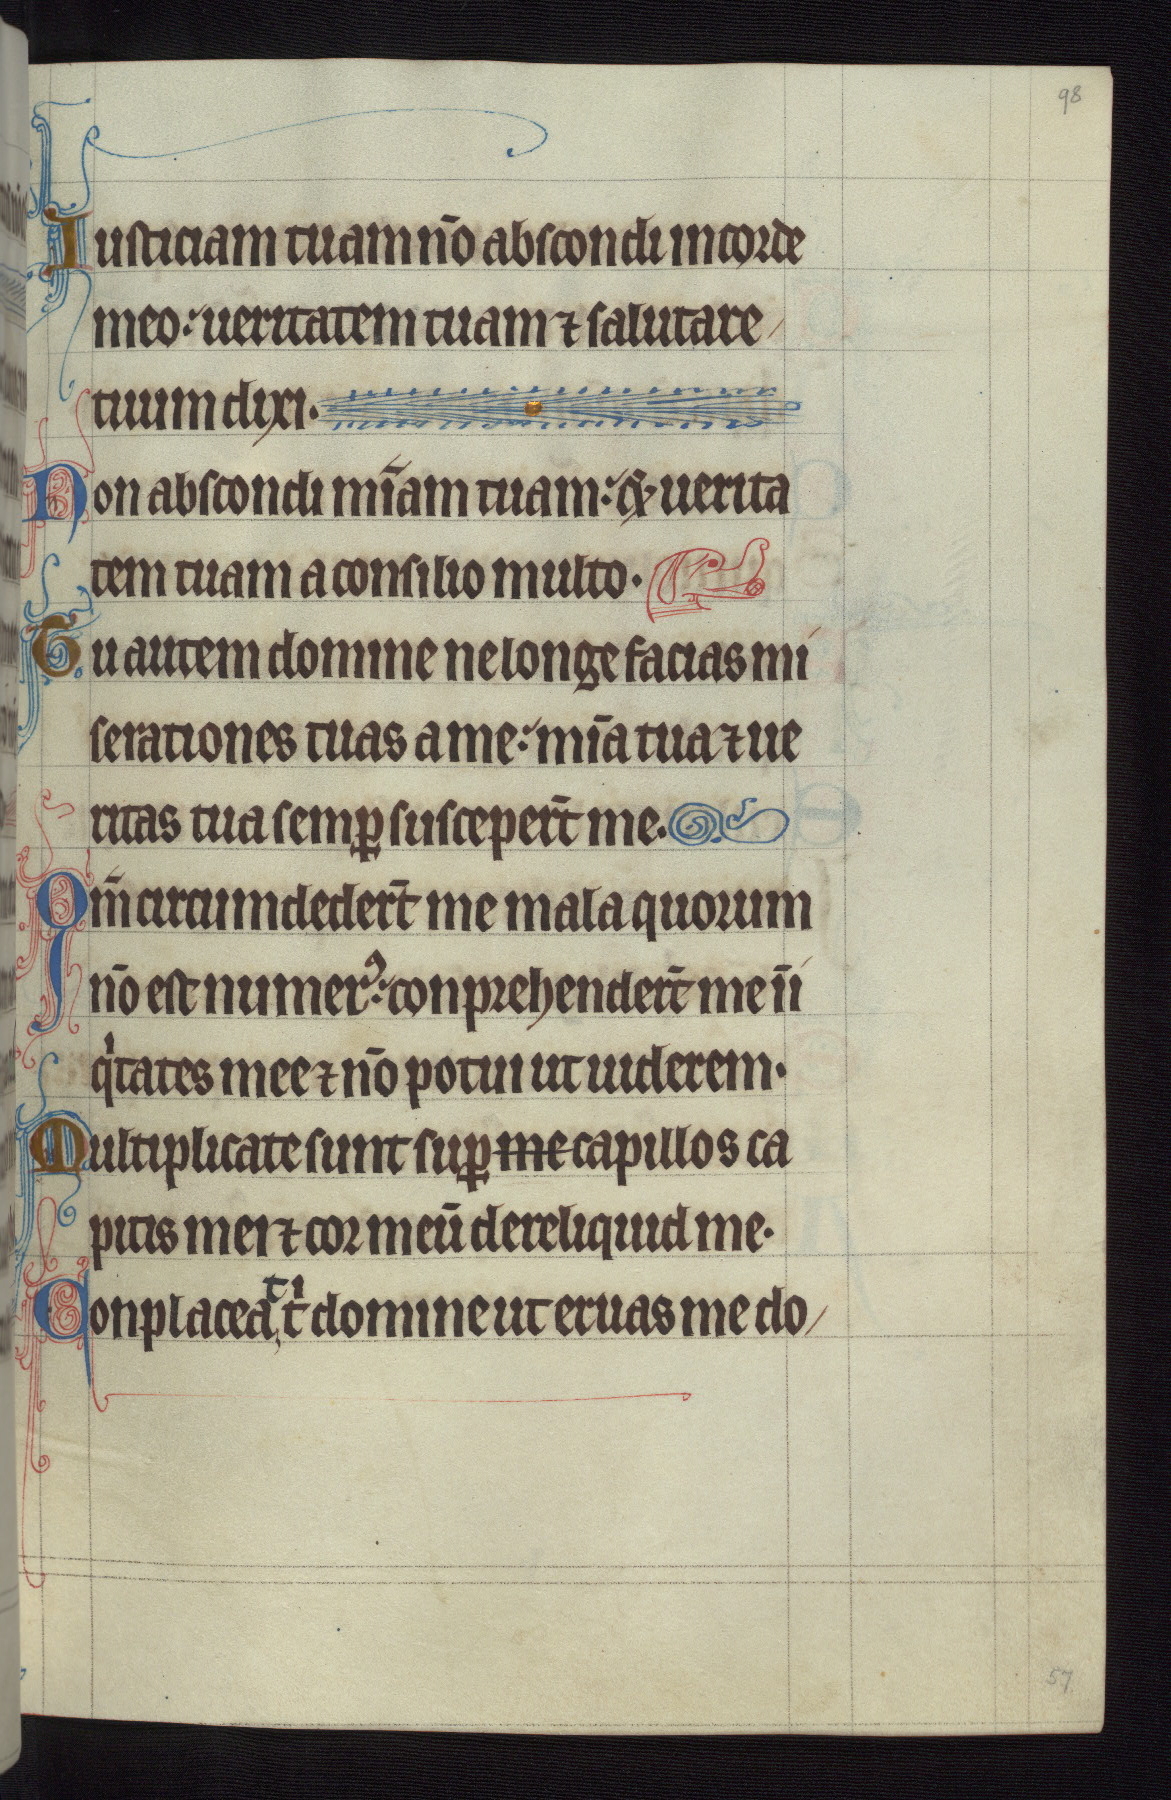 98
Iusticiam tuam nō abscondi in corde
meo: ueritatem tuam ⁊ salutare
tuum dixi.
Non abscondi mīam tuam: & uerita
tem tuam a consilio multo.
Tu autem domine ne longe facias mi
serationes tuas a me: mīa tua ⁊ ue
ritas tua semꝑ susceper̄t me.
Qm̄ circumdeder̄t me mala quorum
nō est numerꝰ: conprehender̄t me īi
qͥtates mee ⁊ nō potui ut uiderem.
Multiplicate sunt suꝑ me capillos ca
pitis mei ⁊ cor meū dereliquid me.
Conplaceat tͥ domine ut eruas me do
57